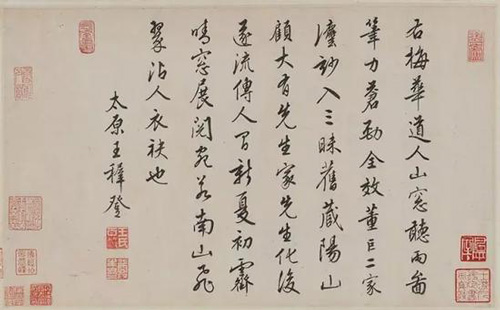 右梅華道人山窓聽雨啚
筆力蒼勁全效董巨二家
澶玅入三昧舊蔵陽山
顧大有先生家先生化後
遂流傳人間新夏初霽
晴窓展閲宛若南山飛
翠沾人衣袂也
太原王穉登